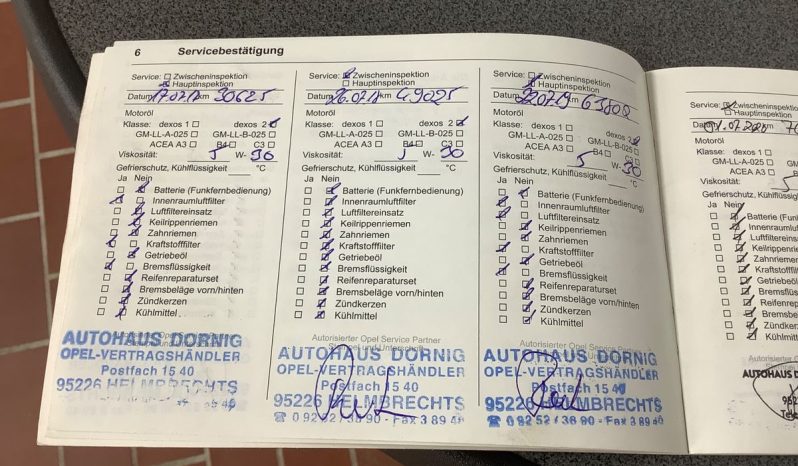 6 Servicebestätigung
Service: Zwischeninspektion
Hauptinspektion
Datum 17.07.17 km 30625
Motoröl
Klasse: dexos 1 dexos 2
GM-LL-A-025 GM-LL-B-025
ACEA A3 B4 C3
Viskosität: 5 W- 30
Gefrierschutz, Kühlflüssigkeit °C
Ja Nein
Batterie (Funkfernbedienung)
Innenraumluftfilter
Luftfiltereinsatz
Keilrippenriemen
Zahnriemen
Kraftstofffilter
Getriebeöl
Bremsflüssigkeit
Reifenreparaturset
Bremsbeläge vorn/hinten
Zündkerzen
Kühlmittel
AUTOHAUS DORNIG
OPEL-VERTRAGSHÄNDLER
Postfach 15 40
95226 HELMBRECHTS
Service: Zwischeninspektion
Hauptinspektion
Datum 26.07.18 km 49025
Motoröl
Klasse: dexos 1 dexos 2
GM-LL-A-025 GM-LL-B-025
ACEA A3 B4 C3
Viskosität: 5 W- 30
Gefrierschutz, Kühlflüssigkeit °C
Ja Nein
Batterie (Funkfernbedienung)
Innenraumluftfilter
Luftfiltereinsatz
Keilrippenriemen
Zahnriemen
Kraftstofffilter
Getriebeöl
Bremsflüssigkeit
Reifenreparaturset
Bremsbeläge vorn/hinten
Zündkerzen
Kühlmittel
Autorisierter Opel Service Partner
Stempel und Unterschrift
AUTOHAUS DORNIG
OPEL-VERTRAGSHÄNDLER
Postfach 15 40
95226 HELMBRECHTS
☎ 0 92 52 / 36 90 - Fax 3 89 4
Service: Zwischeninspektion
Hauptinspektion
Datum 22.07.19 km 63800
Motoröl
Klasse: dexos 1 dexos 2
GM-LL-A-025 GM-LL-B-025
ACEA A3 B4 C3
Viskosität: 5 W- 30
Gefrierschutz, Kühlflüssigkeit °C
Ja Nein
Batterie (Funkfernbedienung)
Innenraumluftfilter
Luftfiltereinsatz
Keilrippenriemen
Zahnriemen
Kraftstofffilter
Getriebeöl
Bremsflüssigkeit
Reifenreparaturset
Bremsbeläge vorn/hinten
Zündkerzen
Kühlmittel
Autorisierter Opel Service Partner
AUTOHAUS DORNIG
OPEL-VERTRAGSHÄNDLER
Postfach 15 40
95226 HELMBRECHTS
☎ 0 92 52 / 36 90 - Fax 3 89 40
Service: Zwischeninspektion
Hauptinspektion
01.07.2020 km
Motoröl
Klasse: dexos 1
GM-LL-A-025
ACEA A3
Viskosität: 5
Gefrierschutz, Kühlflüs
Ja Nein
Batterie (Fu
Innenraumlu
Luftfiltereins
Keilrippenrie
Zahnriemen
Kraftstofffilte
Getriebeöl
Bremsflüss
Reifenrepa
Bremsbelä
Zündkerz
Kühlmitte
Autorisierter
AUTOHAUS D